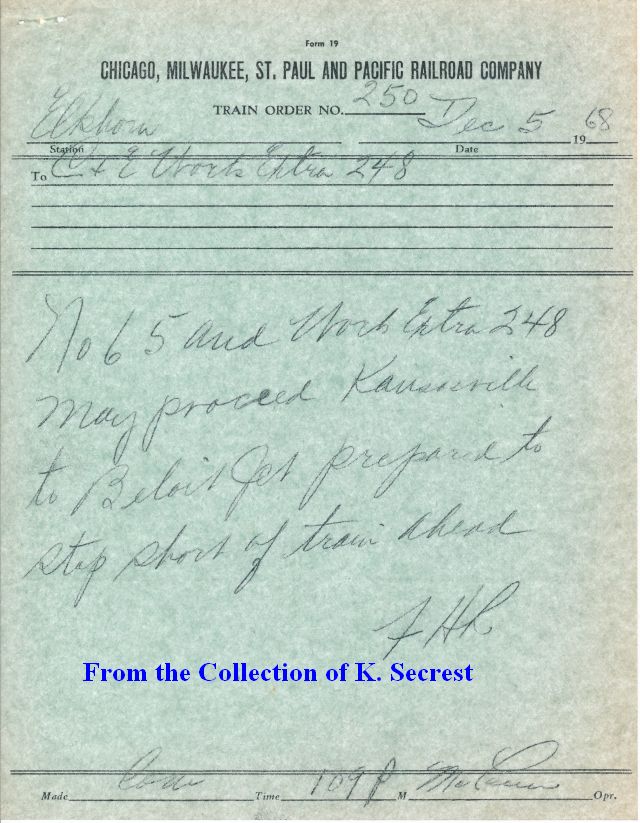 Form 19
CHICAGO, MILWAUKEE, ST. PAUL AND PACIFIC RAILROAD COMPANY
TRAIN ORDER NO. 250
Elkhorn Dec 5 1968
Station Date
To C+E Work Extra 248
No 65 and Work Extra 248
may proceed Kansasville
to Beloit Jct prepared to
stop short of train ahead
FHR
From the Collection of K. Secrest
Made Com Time 109 P M Opr.